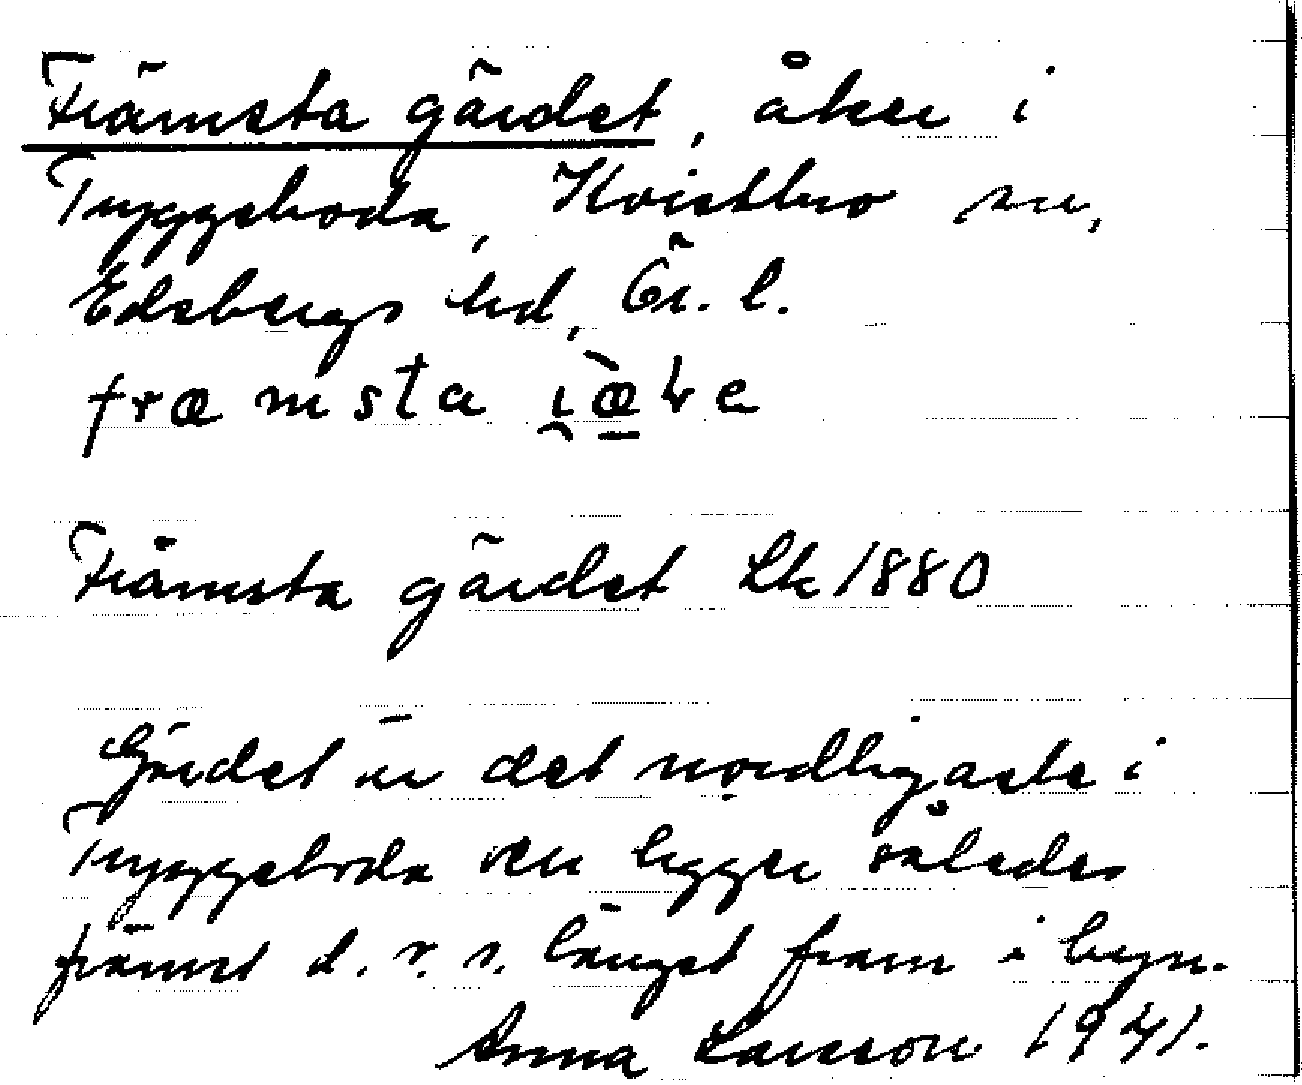 Främsta gärdet, åker i
Tryggeboda, Kvistbro sn,
Edsbergs hd, Ör. l.
fræmsta
Främsta gärdet Lk 1880
Gärdet är det nordligaste i
Tryggeboda och ligger således
främst d. v. s. längst fram i byn.
Anna Larsson 1941.